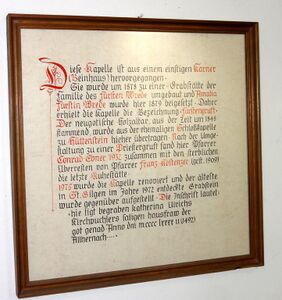 Diese Kapelle ist aus einem einstigen Karner
(Beinhaus) hervorgegangen.
Sie wurde um 1878 zu einer Grabstätte der
Familie des Fürsten Wrede umgebaut und Amalia
Fürstin Wrede wurde hier 1879 beigesetzt. Daher
erhielt die Kapelle die Bezeichnung "Fürstengruft"
Der neugotische Holzaltar, aus der Zeit um 1845
stammend wurde aus der ehemaligen Schloßkapelle
zu Hüttenstein hierher übertragen. Nach der Umge-
staltung zu einer Priestergruft fand hier Pfarrer
Conrad Ebner 1932 zusammen mit den sterblichen
Überresten von Pfarrer Franz (gest. 1909)
die letzte Ruhestätte
1975 wurde die Kapelle renoviert und der älteste
in St. Gilgen im Jahre 1972 entdeckte Grabstein
wurde gegenüber aufgestellt. Die Inschrift lautet:
hie ligt begraben katherina Ulrichs
Kirchwuchlers saligen hausfraw der
got genad Anno dni mcccc lxxxx ii (1492)